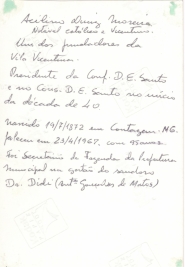 Acilino Diniz Moreira
Notável católico e Vicentino.
Um dos fundadores da
Vila Vicentina.
Presidente da Conf. D. E. Santo
e no Cons. D. E. Santo no início
da década de 40
nascido 19/7/1872 em Contagem - MG.
faleceu em 23/4/1967, com 95 anos.
Foi Secretário de Fazenda da Prefeitura
Municipal na gestão do saudoso
Dr. Didi (Antº Gonçalves de Matos)